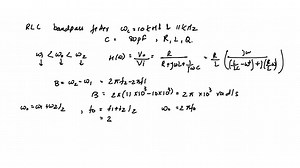 RLC bandpass filter ω₁ = 10kHz & 11kHz
C = 80pF, R, L, Q
ω₁ < ω₀ < ω₂ H(ω) = V₀/Vi = R/(R+jωL+1/jωC) = R/L
B = ω₂ - ω₁ = 2πf₂ - 2πf₁
B = 2π(11×10³ - 10×10³) = 2π × 10³ rad/s
ω₀ = ω₁+ω₂/2, f₀ = f₁+f₂/2 ω₀ = 2πf₀
= 2